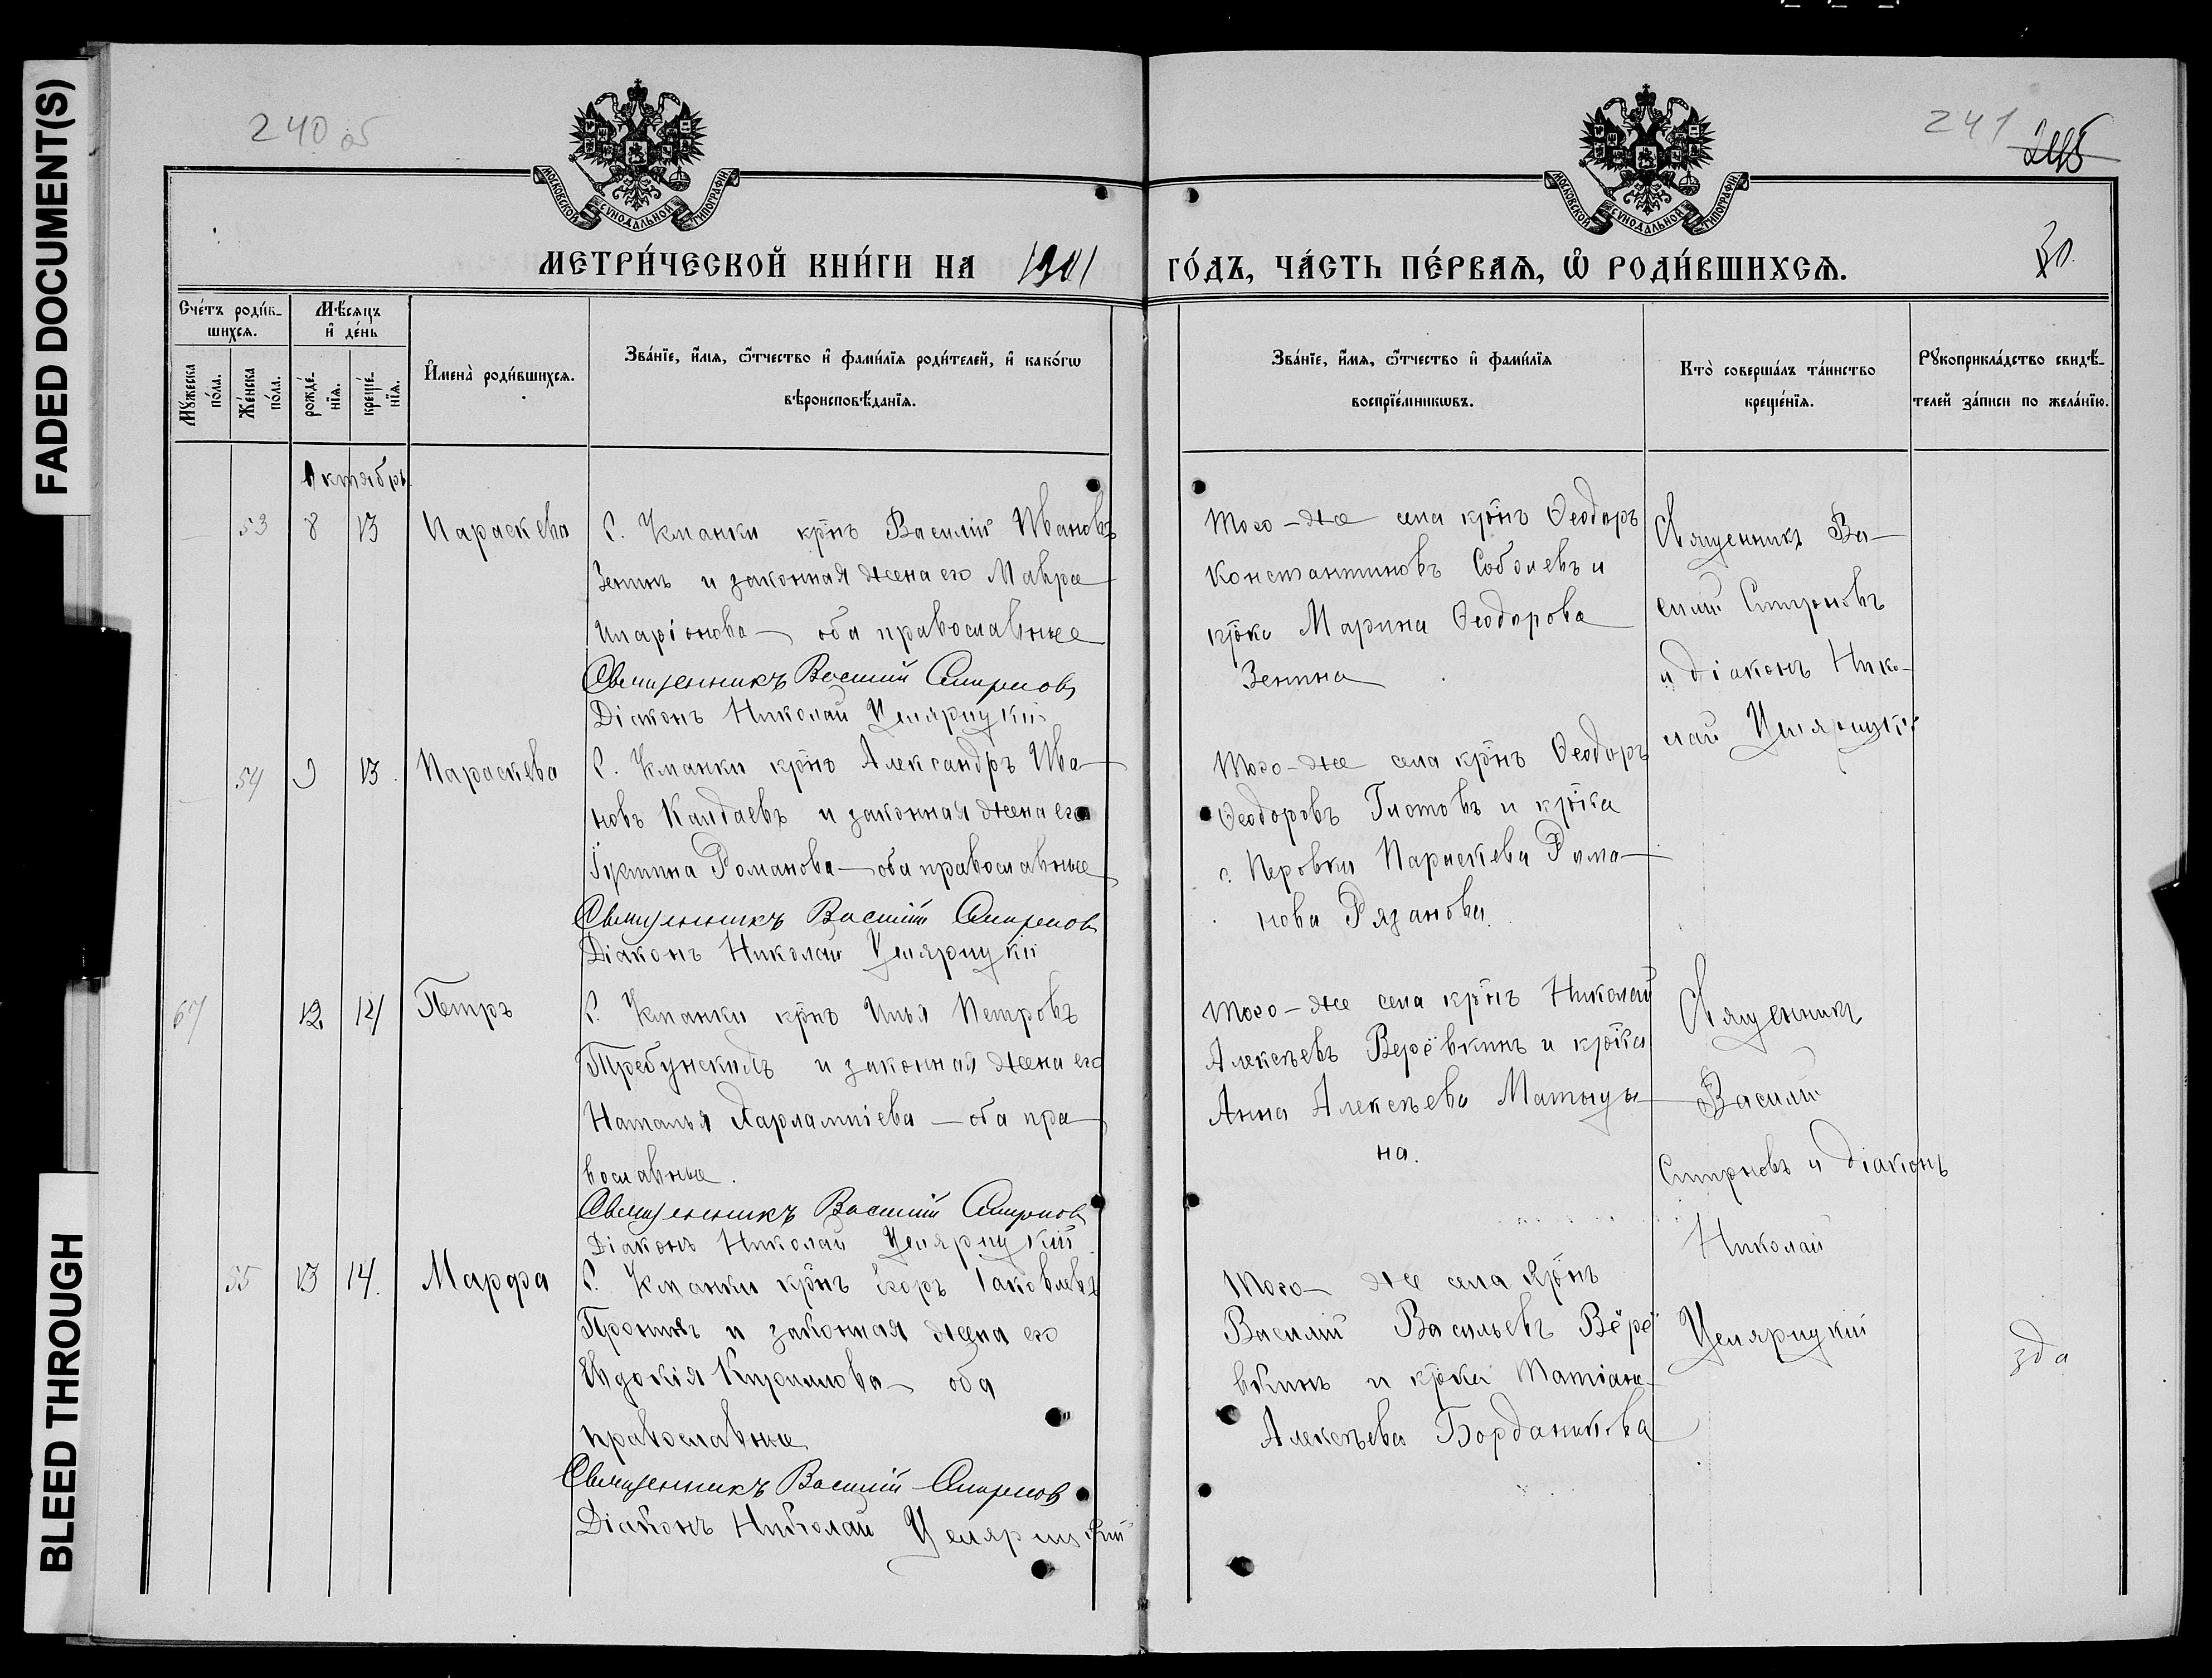 FADED DOCUMENT(S)
BLEED THROUGH
240 об
241
245
МОСКОВСКОЙ СѴНОДАЛЬНОЙ ТИПОГРАФІИ
МОСКОВСКОЙ СѴНОДАЛЬНОЙ ТИПОГРАФІИ
МЕТРИ́ЧЕСКОЙ КНИ́ГИ НА 1901
ГО́ДЪ, ЧА́СТЬ ПЕ́РВАѦ, Ѡ҆ РОДИ́ВШИХСѦ.
30.
Сче́тъ роди́в-
шихсѧ.
Мꙋ́жеска по́ла.
Же́нска по́ла.
Мѣ́сѧцъ и҆ де́нь
рожде́-нїѧ.
креще́-нїѧ.
И҆мена̀ роди́вшихсѧ.
Зва́нїе, и҆́мѧ, ѻ҆́тчество и҆ фами́лїѧ роди́телей, и҆ како́гѡ
вѣроисповѣ́данїѧ.
Зва́нїе, и҆́мѧ, ѻ҆́тчество и҆ фами́лїѧ
воспрїе́мникѡвъ.
Кто̀ соверша́лъ та́инство
креще́нїѧ.
Рꙋкоприкла́дство свидѣ́-
телей за́писи по жела́нїю.
Октябрь
53 8 13 Параскева
С. Кманки крнъ Василій Ивановъ
Зенинъ и законная жена его Мавра
Иларіонова — оба православные
Священникъ Василій Смирновъ
Діаконъ Николай
Того-же села крнъ Ѳеодоръ
Константиновъ Соболевъ и
крка Марина Ѳеодорова
Зенина
Священникъ Ва-
силій Смирновъ
и діаконъ Нико-
лай
54 9 13. Параскева
С. Кманки крнъ Александръ Ива-
новъ Калдаевъ и законная жена его
Іустина Романова — оба православные
Священникъ Василій Смирновъ
Діаконъ Николай
Того-же села крнъ Ѳеодоръ
Ѳеодоровъ Глотовъ и крка
с. Перовки Параскева Рома-
нова Рязанова.
67 12 14 Петръ
С. Кманки крнъ Илья Петровъ
и законная жена его
Наталья Харлампіева — оба пра-
вославные.
Священникъ Василій Смирновъ
Діаконъ Николай
Того-же села крнъ Николай
Алексѣевъ Верёвкинъ и крка
Анна Алексѣева
на.
Священникъ
Василій
Смирновъ и діаконъ
Николай
55 13 14. Марфа
С. Кманки крнъ Егоръ Іаковлевъ
Пронинъ и законная жена его
Евдокія Кириллова — оба
православные
Священникъ Василій Смирновъ
Діаконъ Николай
Того-же села крнъ
Василій Васильевъ Верё
вкинъ и крка Татіана
Алексѣева Борданикова